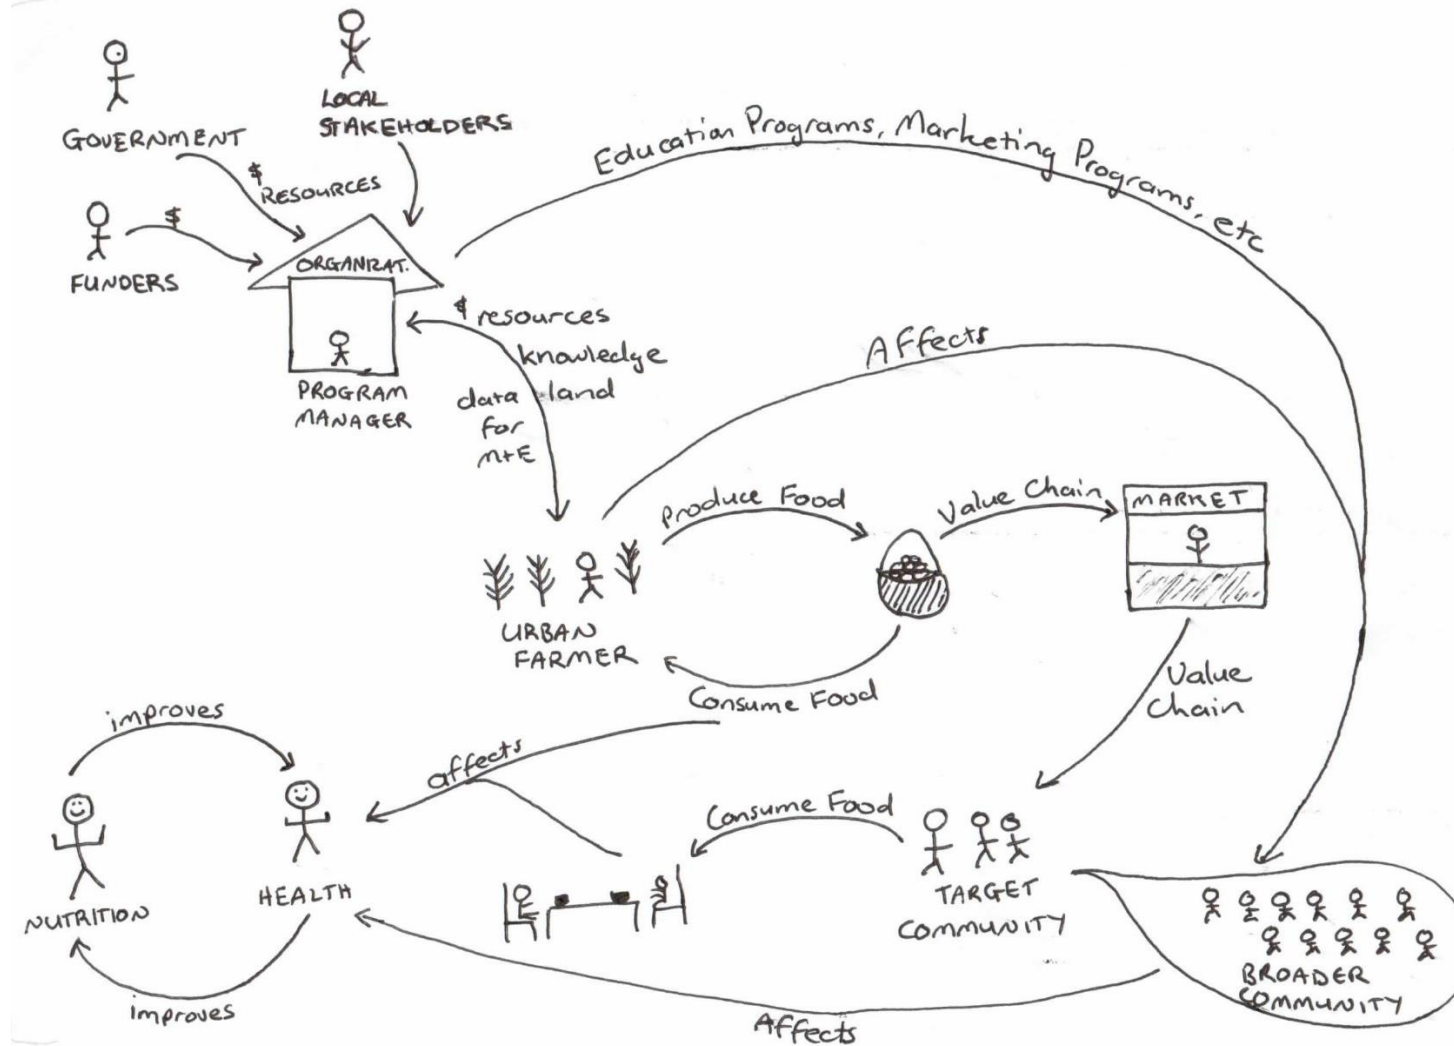 GOVERNMENT
LOCAL
STAKEHOLDERS
$
RESOURCES
$
FUNDERS
ORGANIZAT.
PROGRAM
MANAGER
Education Programs, Marketing Programs, etc
$ resources
knowledge
land
data
for
M+E
Affects
Produce Food
Value Chain
MARKET
URBAN
FARMER
Consume Food
Value
Chain
improves
affects
Consume Food
NUTRITION
HEALTH
TARGET
COMMUNITY
BROADER
COMMUNITY
improves
Affects